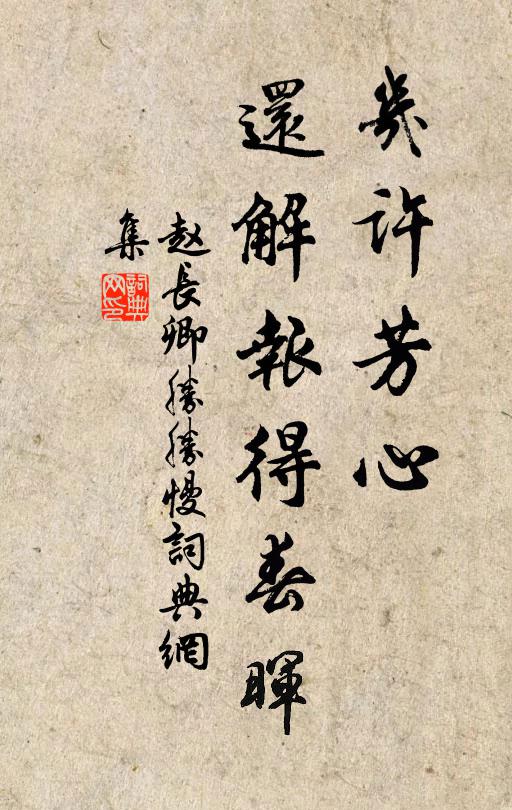 幾许芳心
還解報得春暉
赵長卿勝勝慢詞典網
集
詞典
网印